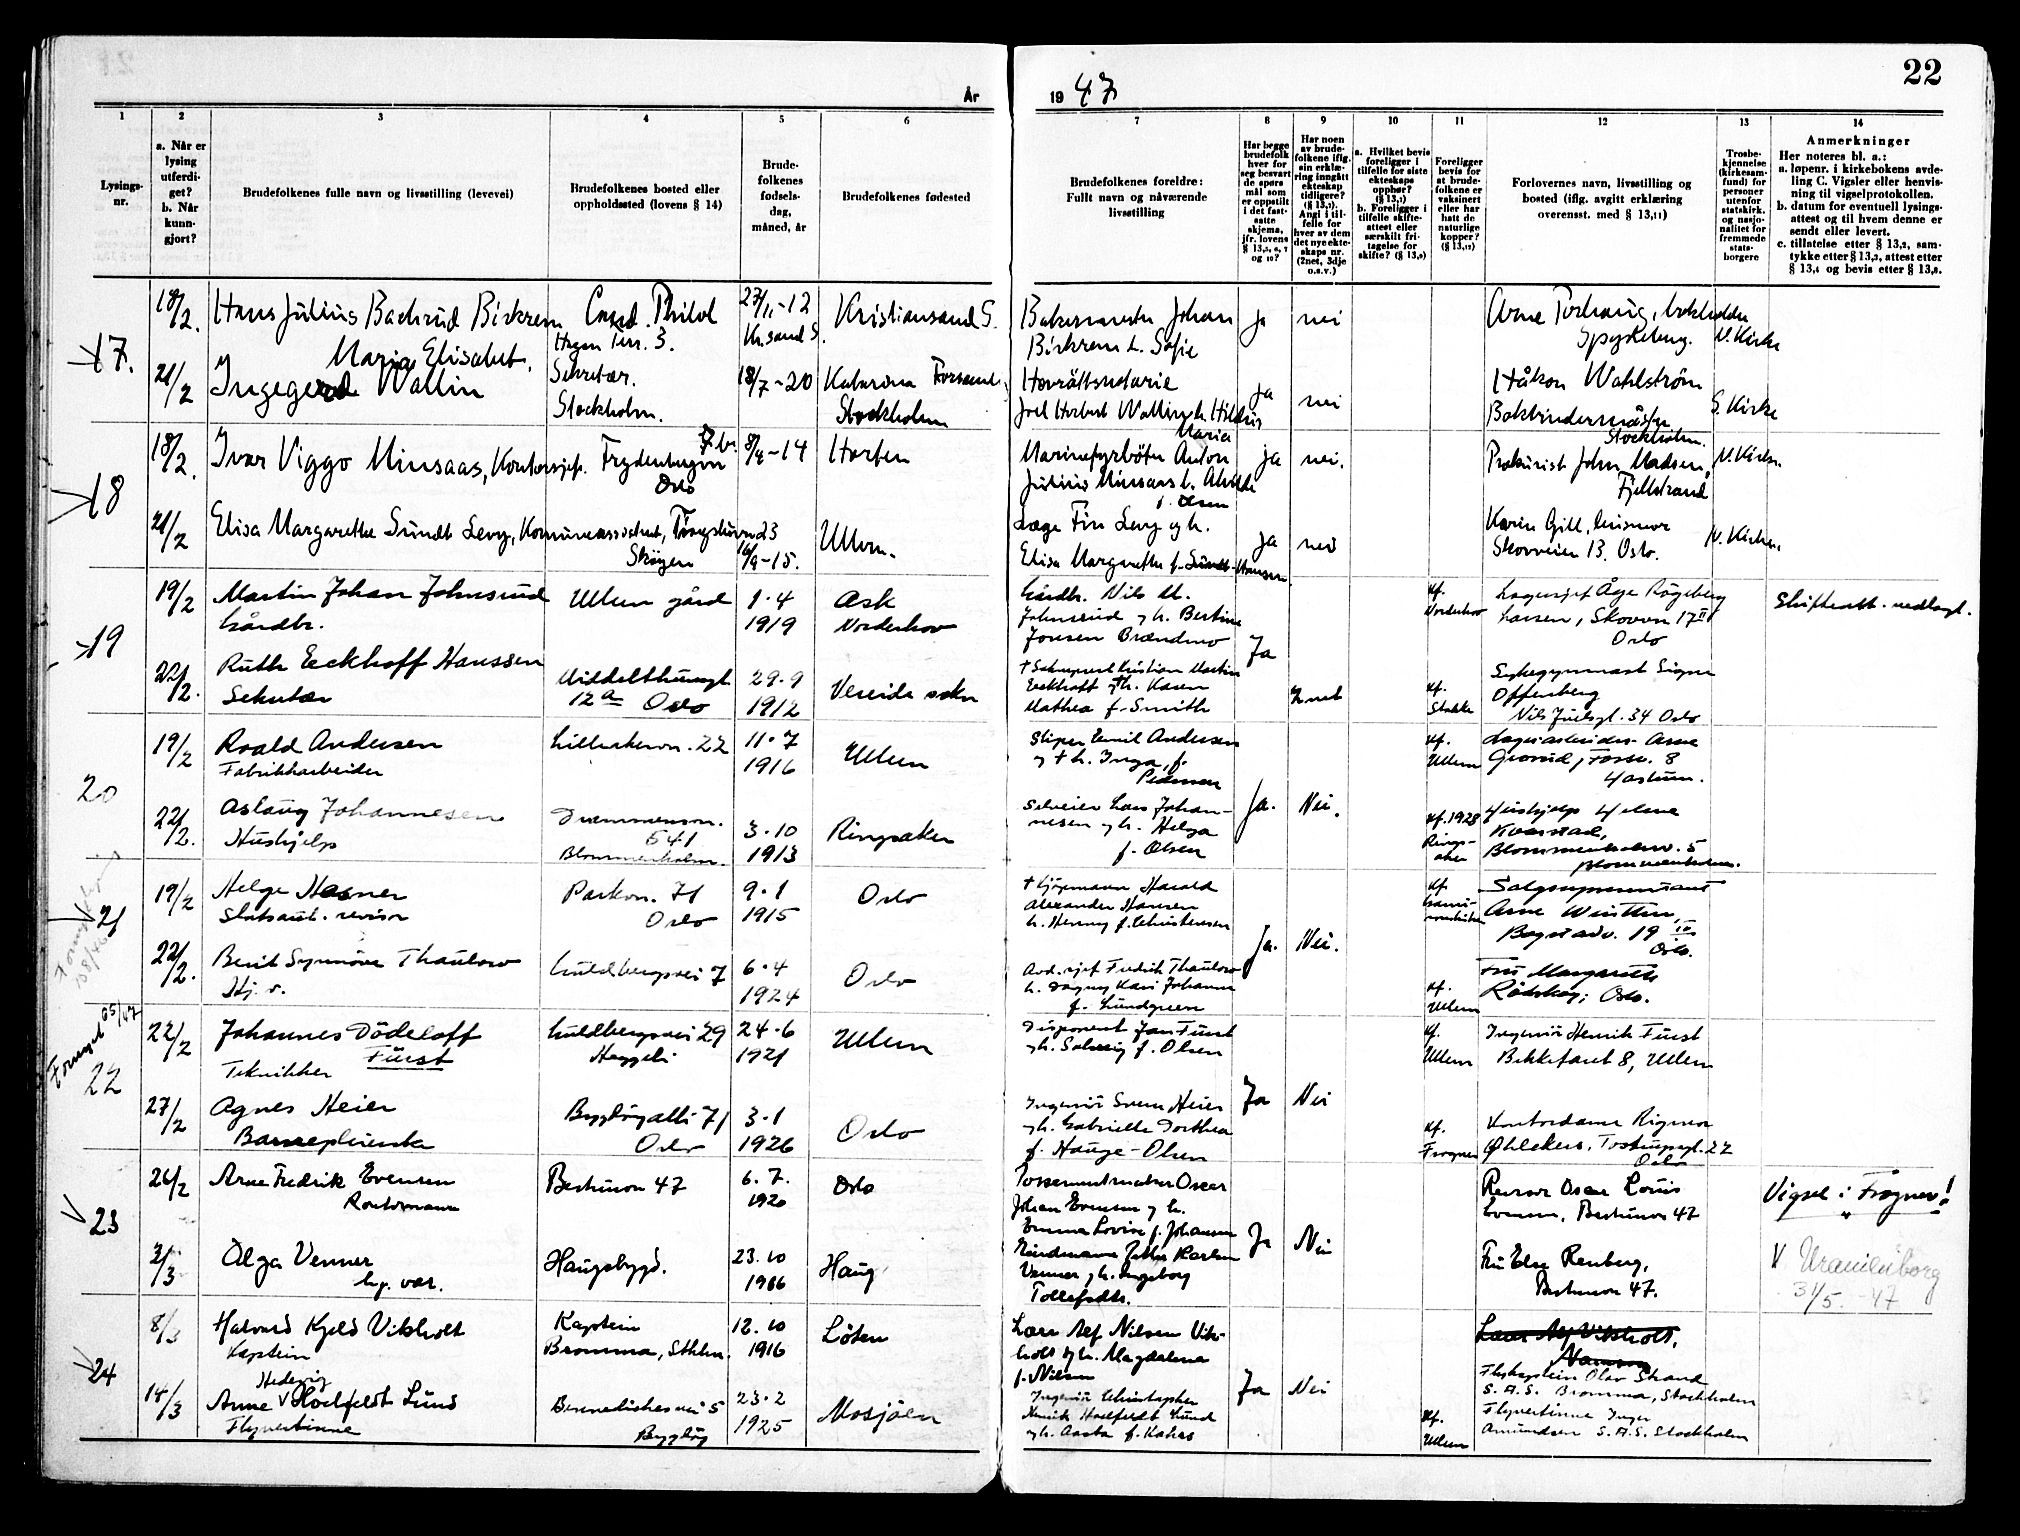 22
År
19 47
1
2
3
4
5
6
7
8
9
10
11
12
13
14
Lysings-
nr.
a. Når er
lysing
utferdi-
get?
b. Når
kunn-
gjort?
Brudefolkenes fulle navn og livsstilling (levevei)
Brudefolkenes bosted eller
oppholdssted (lovens § 14)
Brude-
folkenes
fødsels-
dag,
måned, år
Brudefolkenes fødested
Brudefolkenes foreldre:
Fullt navn og nåværende
livsstilling
Har begge
brudefolk
hver for
seg besvart
de spørs
mål som
er oppstilt
i det fast-
satte
skjema,
jfr. lovens
Har noen
av brude-
folkene iflg.
sin erklæ-
ring inngått
ekteskap
tidligere?
Angi i til-
felle for
hver av dem
det nye ekte-
skaps nr.
(2net, 3dje
o.s.v.)
a. Hvilket bevis
foreligger i
tilfelle for siste
ekteskaps
opphør?
b. Foreligger i
tilfelle skifte-
attest eller
særskilt fri-
tagelse for
skifte?
Foreligger
bevis for
at brude-
folkene er
vaksinert
eller har
hatt de
naturlige
kopper?
Forlovernes navn, livsstilling og
bosted (iflg. avgitt erklæring
overensst. med § 13,11)
Trosbe-
kjennelse
(kirkesam-
fund) for
personer
utenfor
statskirk.
og nasjo-
nalitet for
fremmede
stats-
borgere
Anmerkninger
Her noteres bl. a.:
a. løpenr. i kirkebokens avde-
ling C. Vigsler eller henvis-
ning til vigselprotokollen.
b. datum for eventuell lysings-
attest og til hvem denne er
sendt eller levert.
c. tillatelse etter § 13,2, sam-
tykke etter § 13,3, attest etter
§ 13,4 og bevis etter § 13,8.
17.
18/2.
Hans Julius Bachrud Birkrem
Cand. Philol
Hagan Terr. 3.
27/11-12
Kr.sand S.
Kristiansand S.
Bakermester Johan
Birkrem h. Sofie
ja
nei
N. Kirke
21/2
Maria Elisabet.
Ingegerd Wallin
Sekretær.
Stockholm.
18/7-20
Katarina
Stockholm
Hovrättsnotarie
Joel Herbert Wallin h.
Maria
ja
nei
Håkon Wahlström
Stockholm.
S. Kirke
18
18/2.
Ivar Viggo Minsaas, Kontorsjef.
Oslo
14
Horten
Anton
Julius Minsaas h.
f. Olsen
ja
nei.
Prokurist John Madsen,
Fjellstrand
21/2
Elisa Margarethe Sundt Levy,
Skøyen
15.
Ullern.
Læge Fin Levy og h.
Elisa Margrethe f. Sundt-Hansen.
ja
nei
Karin Gill,
Skovveien 13. Oslo.
19
19/2
Martin Johan Johnsrud
Gårdbr.
Ullern gård
1.4
1919
Ask
Norderhov
Gårdbr. Nils M.
Johnsrud og h. Bertine
Jonsen Brændmo
Ja
Kf.
Norderhov
Lagersjef Åge Rögeberg
Larsen, Skovvn 17 II
Oslo
Skifteatt. vedlagt.
22/2.
Ruth Eeckhoff Hanssen
Sekretær
Middelthunsgt
12a Oslo
29.9
1912
Eeckhoff og h. Karen
Mathea f. Smith
2net
Kf.
Sykegymnast Signe
Offenberg
Nils Juelsgt. 34 Oslo
20
19/2
Roald Andersen
Fabrikkarbeider
Lilleakervn. 22
11.7
1916
Ullern
Sliper Emil Andersen
og † h. Inga, f.
Kf.
Ullern
Lagerarbeider Arne
22/2.
Aslaug Johannesen
Hushjelp
Drammensvn.
541
Blommenholm.
3.10
1913
Ringsaker
Lars Johan-
nesen og h. Helga
f. Olsen
Ja.
Nei.
Kf. 1928
Rings-
aker
Hushjelp
Blommenholmv. 5
Blommenholm.
21
19/2
Helge Hasner
Statsaut. revisor
Parkvn. 71
Oslo
9.1
1915
Oslo
† Kjøpmann Harald
Alexander Hansen
h. Henny f. Christensen
Kf.
Arne
Bogstadv. 19
Oslo.
22/2.
Berit Synnöve Thaulow
Hj. v.
Huldbergsvei 7
6.4
1924
Oslo
Avd. sjef Fredrik Thaulow
h. Dagny Kari Johanne
f. Lundgreen
Ja.
Nei.
Kf.
Ullern
Fru Margareth
Oslo.
Fornyet 65/47
22
22/2
Johannes Dödeloff
Fürst
Tekniker
Huldbergsvei 29
Heggeli
24.6
1921
Ullern
Disponent Jan Fürst
og h. Solveig f. Olsen
Kf.
Ullern
Ingeniör Henrik Fürst
Bekkefaret 8, Ullern
27/2
Agnes Heier
Barnepleierske
Bygdöyallé 71
Oslo
3.1
1926
Oslo
Ingeniör Svein Heier
og h. Gabrielle Dorthea
f. Hauge-Olsen
Ja
Nei
Kf.
Frogner
Kontordame Rigmor
Oslo
23
26/2
Arne Fredrik Evensen
Kontormann
Bestumvn 47
6.7.
1920
Oslo
Possementmaker Oscar
Johan Evensen og h.
Emma Lovise f. Johansen
Revisor Oscar Louis
Evensen, Bestumvn 47
Vigsel i Frogner!
2/3
Olga Venner
hj. vær.
Haugsbygd.
23.10
Haug
Venner og h. Ingeborg
Tollefsdtr.
Ja
Nei
Fru Else Renberg,
Bestumvn 47.
V Uranienborg
31/5.-47
24
8/3
Halvard Kjeld Viksholt
Kaptein
Kaptein
Bromma, Sthlm.
12.10
1916
Löten
Alf Nilsen Viks-
holt og h. Magdalena
f. Nilsen
Olav Strand
S.A.S. Bromma, Stockholm
14/3
Hedevig
Anne V Hoelfeldt Lund
Flyvertinne
Benedichesvei 5
Bygdöy
23.2
1925
Mosjöen
Ingeniör Christopher
Henrik Hoelfeldt Lund
og h. Aasta f.
Ja
Nei
Kf.
Ullern
Flyvertinne Inger
Amundsen S.A.S. Stockholm